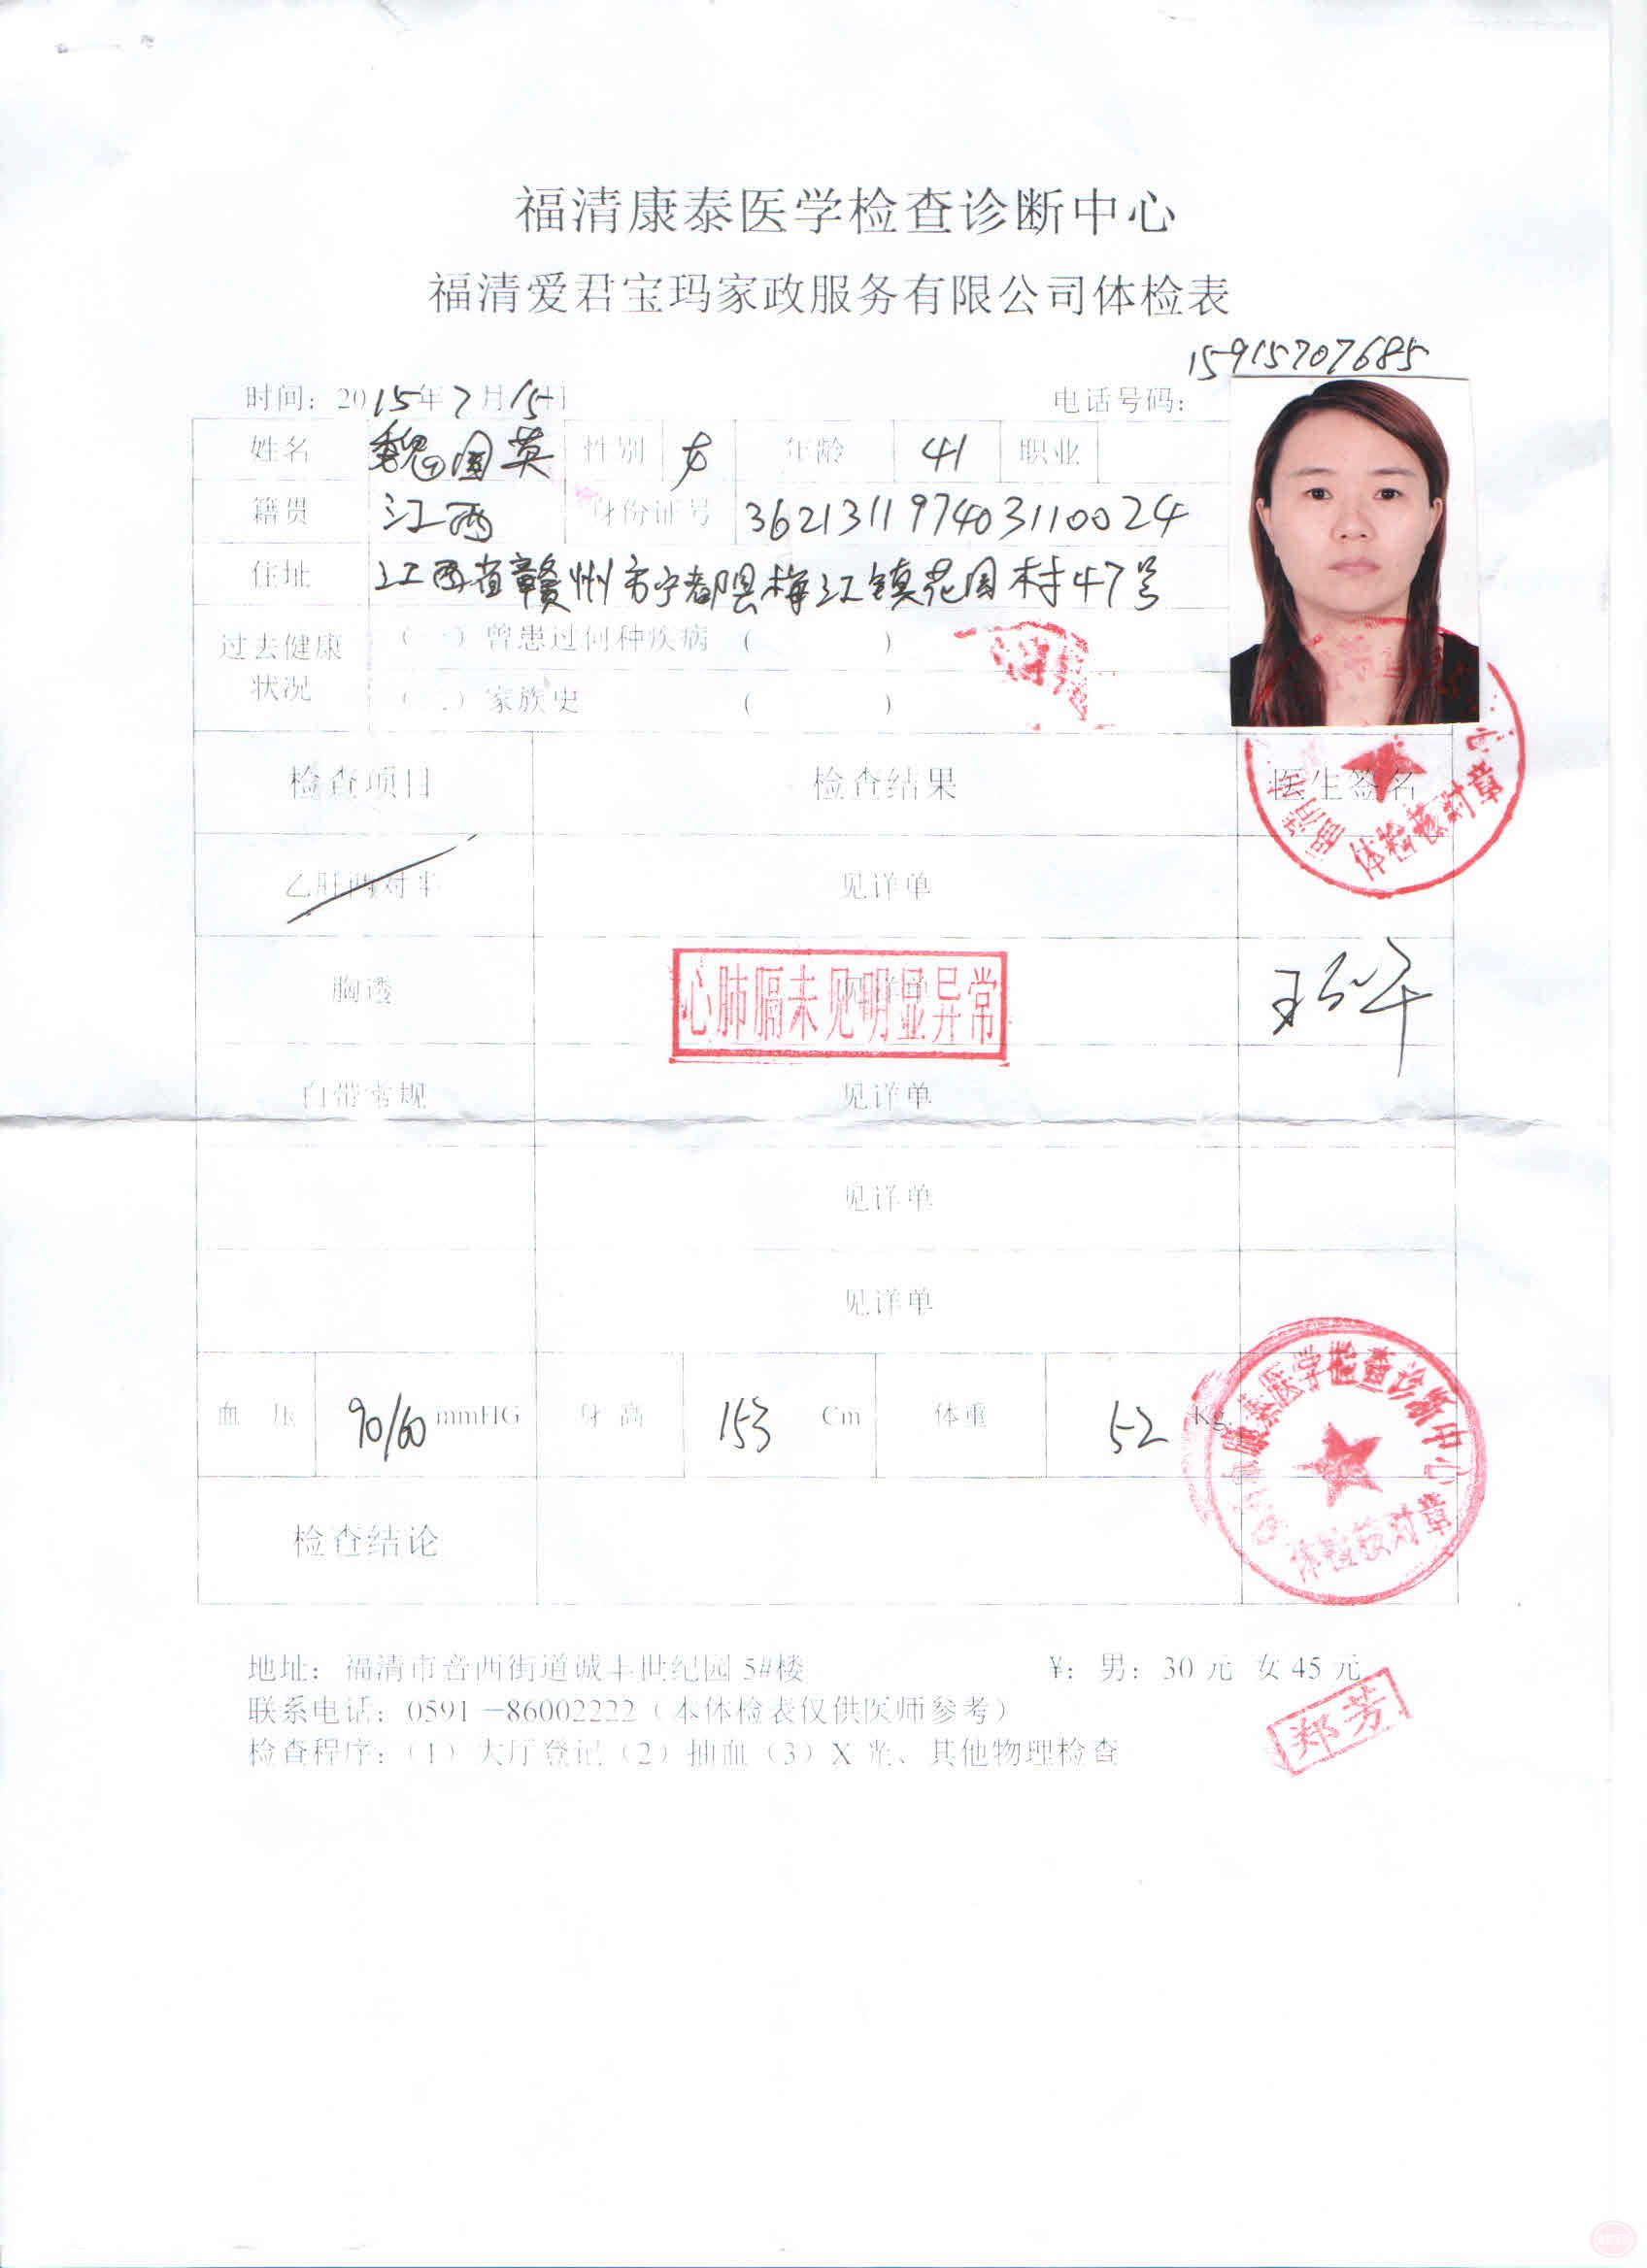 福清康泰医学检查诊断中心
福清爱君宝玛家政服务有限公司体检表
15915707685
时间：2015年7月15日 电话号码：
姓名 魏国英 性别 女 年龄 41 职业
籍贯 江西 身份证号 362131197403110024
住址 江西省赣州市宁都县梅江镇花园村47号
过去健康状况
（一）曾患过何种疾病（ ）
（二）家族史（ ）
检查项目 检查结果 医生签名
体检核对章
乙肝两对半 见详单
胸透 见详单
心肺膈未见明显异常
白带常规 见详单
见详单
见详单
血压 90/60 mmHG 身高 153 Cm 体重 52 Kg
康泰医学检查诊断中心
体检核对章
检查结论
地址：福清市音西街道诚丰世纪园5#楼 ¥：男：30元 女45元
联系电话：0591－86002222（本体检表仅供医师参考）
检查程序：（1）大厅登记（2）抽血（3）X光、其他物理检查
郑芳